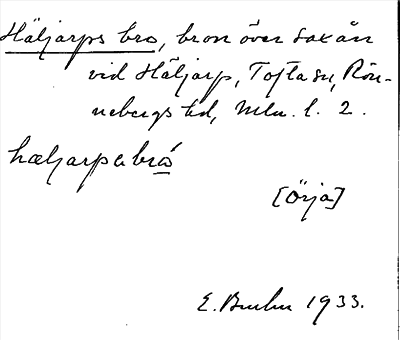 Häljarps bro, bron över Saxån
vid Häljarp, Tofta sn, Rön-
nebergs hd, Mlm. l. 2.
hæljarpsbrå
[Örja]
E. 1933.